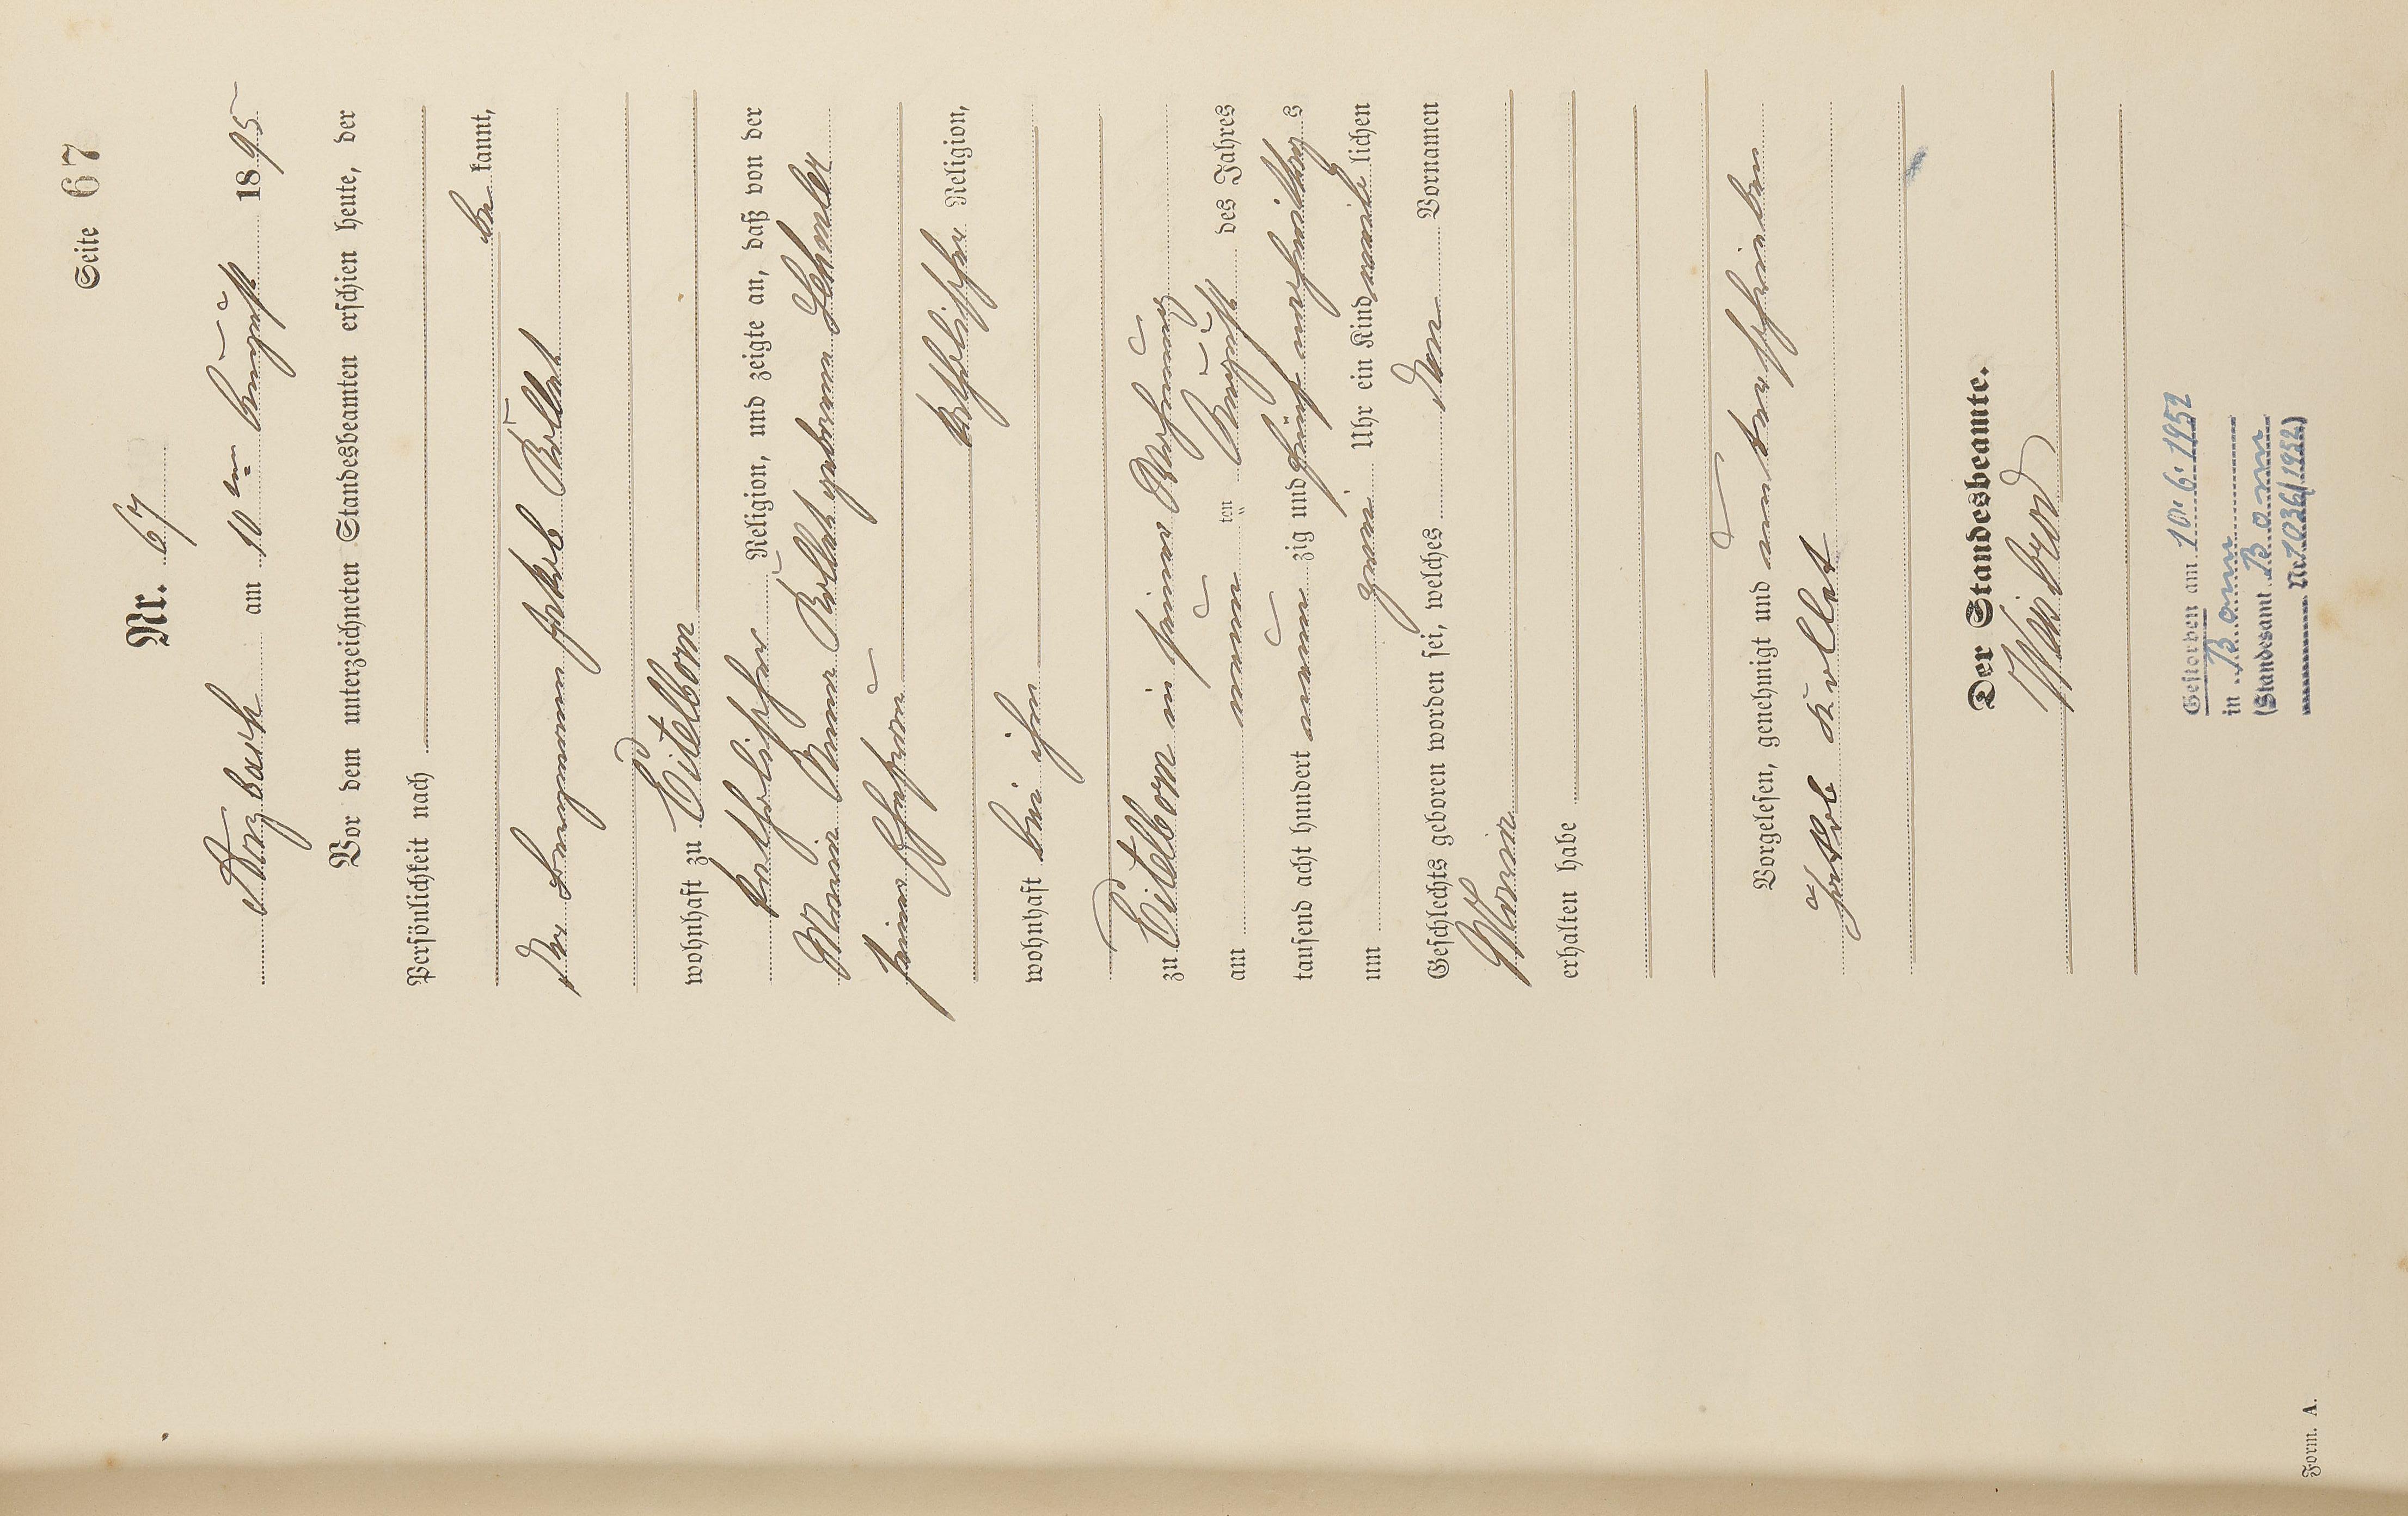 Seite 67
Nr. 67
Arzbach am 10ten August 1895
Vor dem unterzeichneten Standesbeamten erschien heute, der
Persönlichkeit nach
be kannt,
der Bergmann Jakob Kollet
wohnhaft zu Eitelborn
katholischer Religion, und zeigte an, daß von der
Maria Anna Kollet geborene
seiner Ehefrau
katholischer Religion,
wohnhaft bei ihm
zu Eitelborn in seiner Wohnung
am neunten August des Jahres
tausend acht hundert neunzig und fünf nachmittags
um zwei Uhr ein Kind weiblichen
Geschlechts geboren worden sei, welches den Vornamen
Maria
erhalten habe
Vorgelesen, genehmigt und unterschrieben
Jakob Kollet
Der Standesbeamte.
Gestorben am 10.6.1952
in Bonn
(Standesamt Bonn
Nr. 1036/1952)
Form. A.